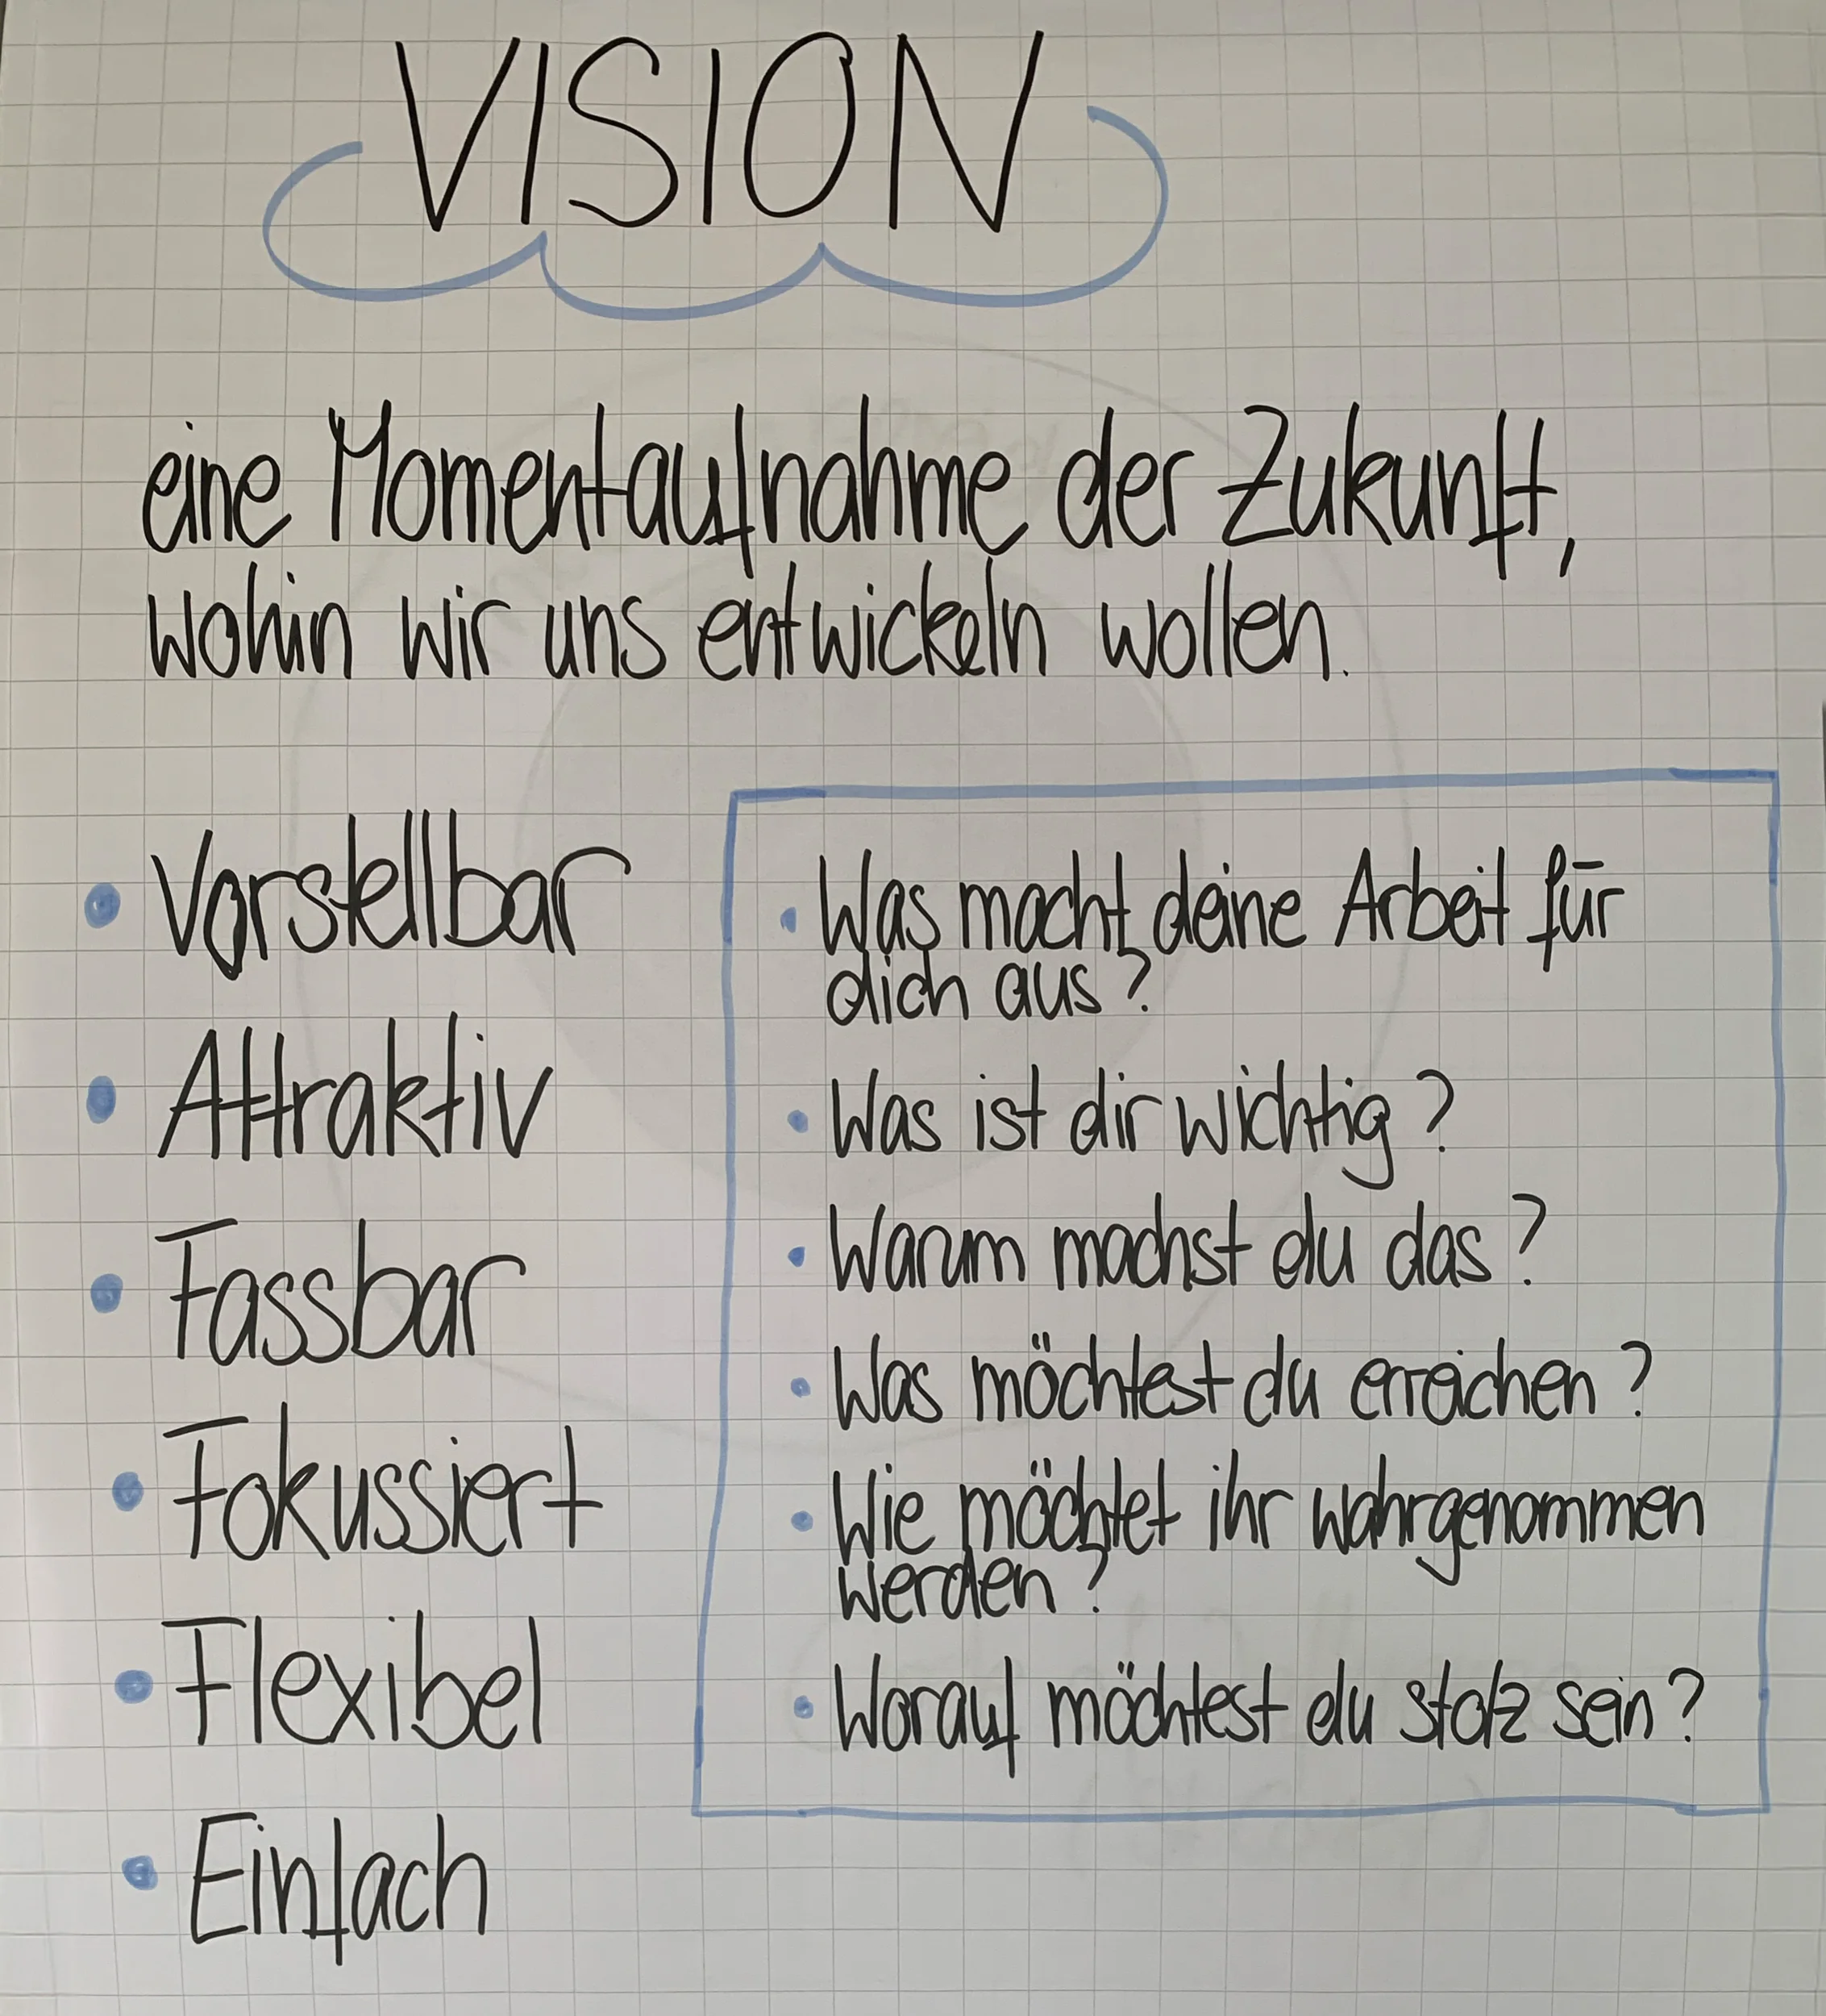 VISION
eine Momentaufnahme der Zukunft,
wohin wir uns entwickeln wollen.
• Vorstellbar
• Attraktiv
• Fassbar
• Fokussiert
• Flexibel
• Einfach
• Was macht deine Arbeit für
dich aus?
• Was ist dir wichtig?
• Warum machst du das?
• Was möchtest du erreichen?
• Wie möchtet ihr wahrgenommen
werden?
• Worauf möchtest du stolz sein?